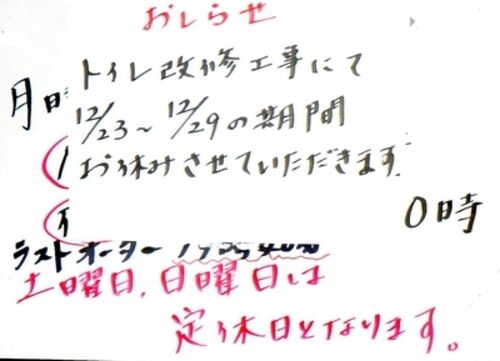 おしらせ
トイレ改修工事にて
月日
12/23～12/29の期間
お休みさせていただきます
0時
ラストオーダー
土曜日、日曜日は
定休日となります。